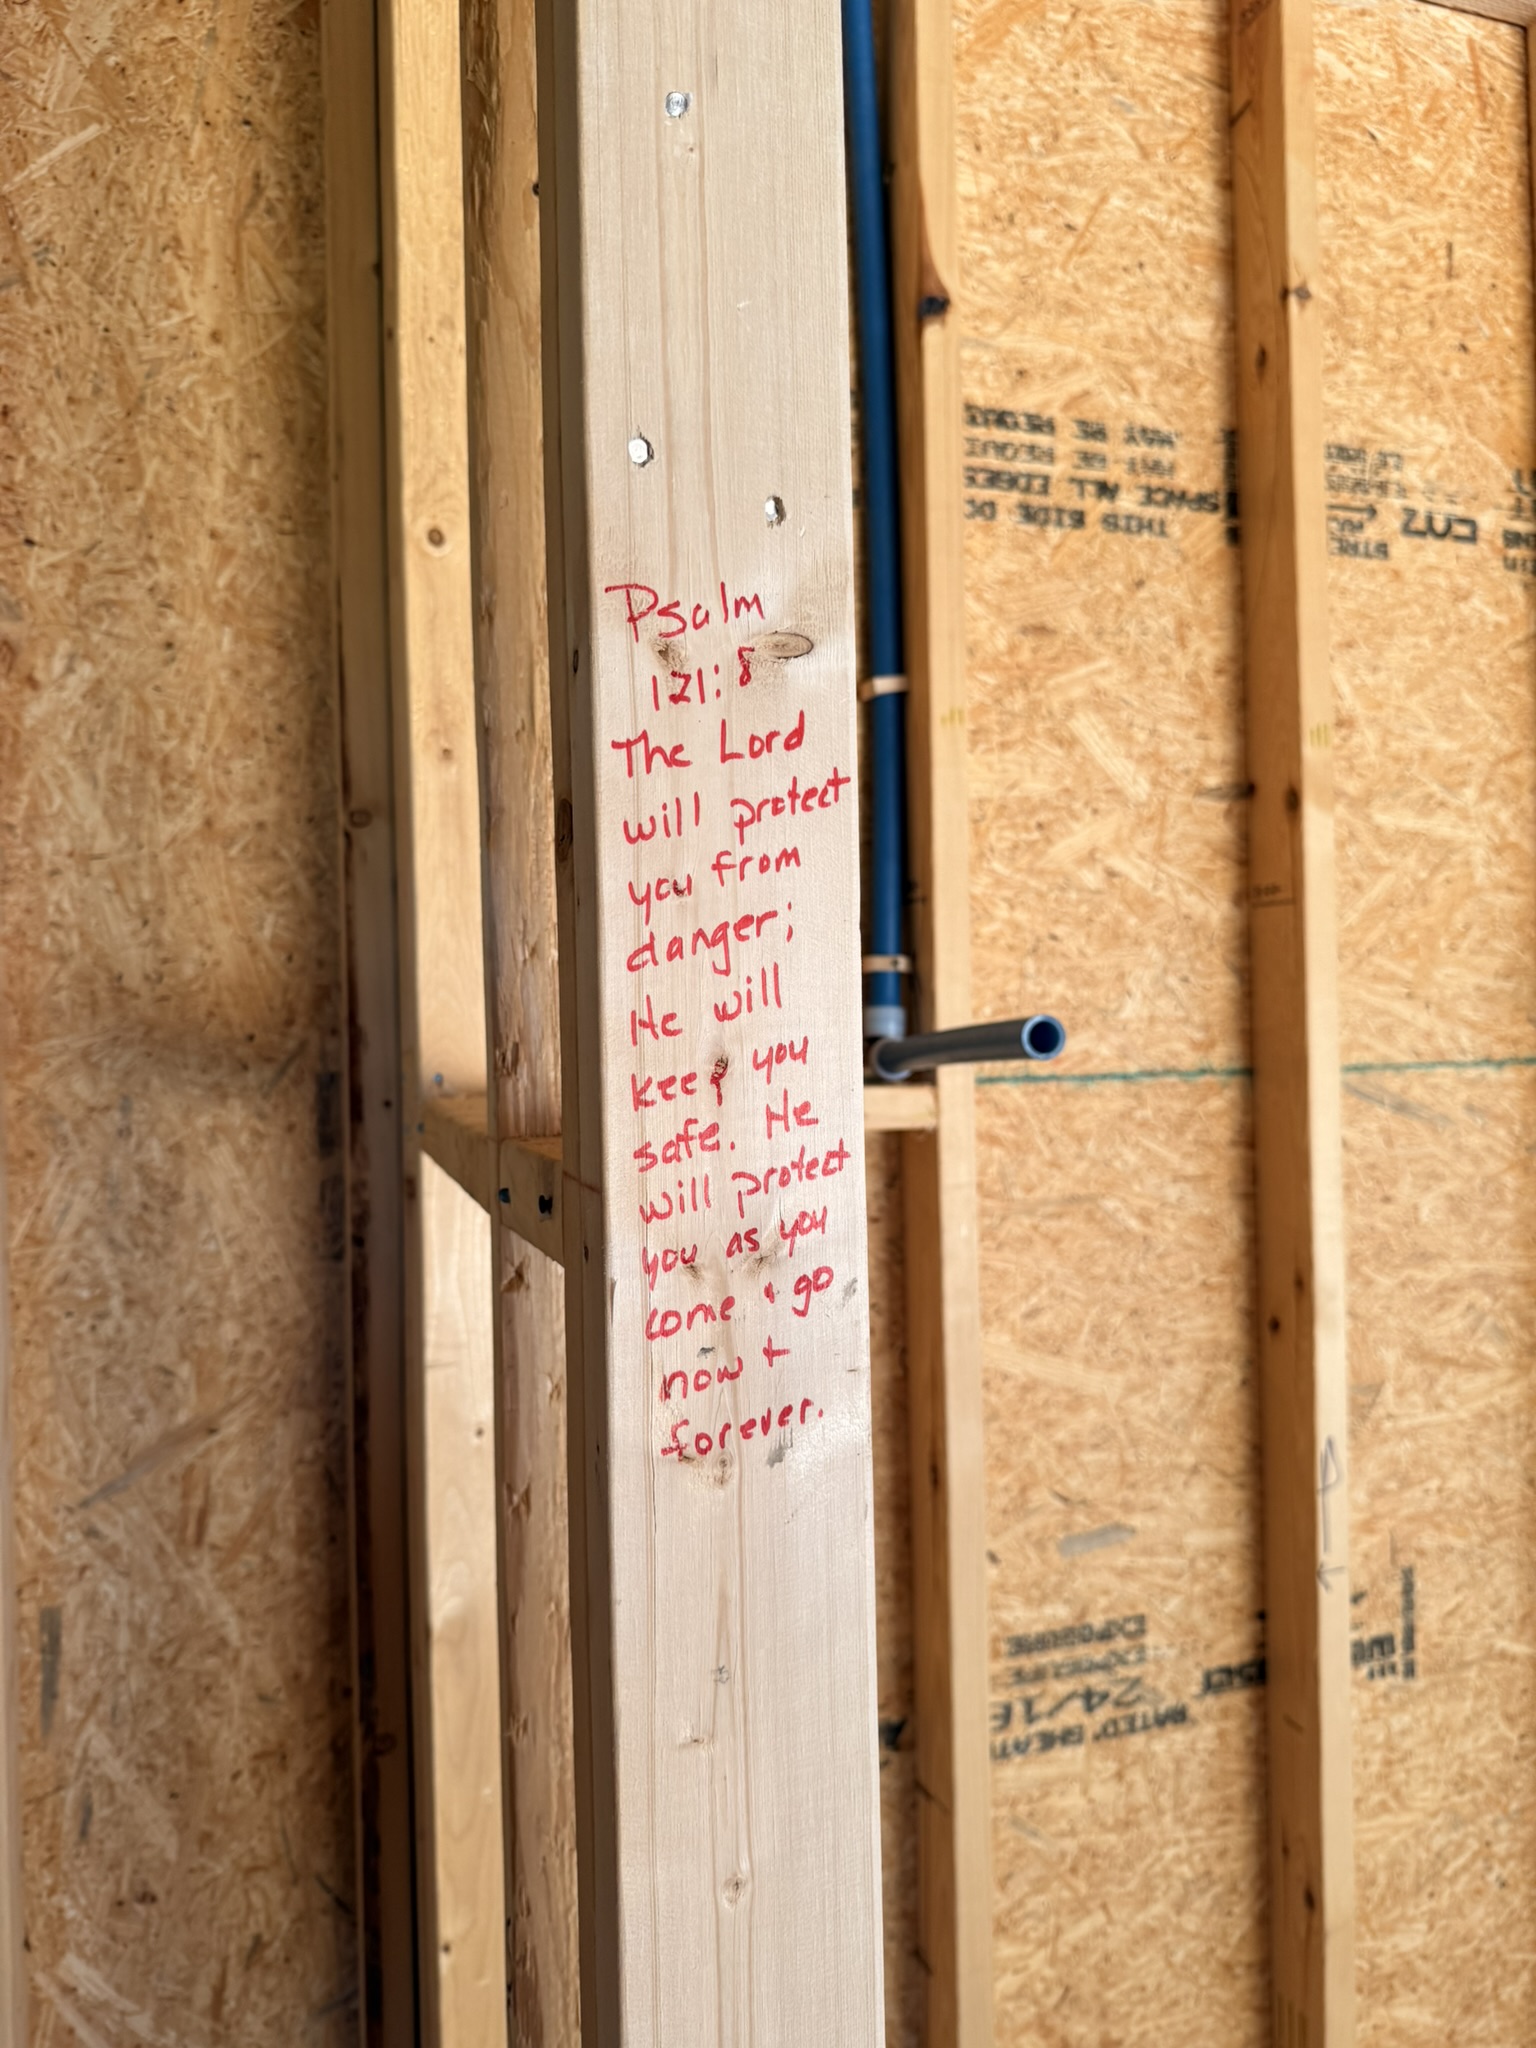 Psalm
121:8
The Lord
will protect
you from
danger;
He will
keep you
safe. He
will protect
you as you
come + go
now +
forever.
THIS SIDE DO
SPACE ALL EDGES
MAY BE REQUI
RATED SHEAT
24/16
EXPOSURE